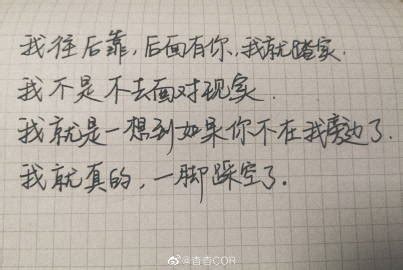 我往后靠,后面有你,我就踏实.
我不是不去面对现实.
我就是一想到如果你不在我旁边了.
我就真的,一脚踩空了.
@杳杳COR